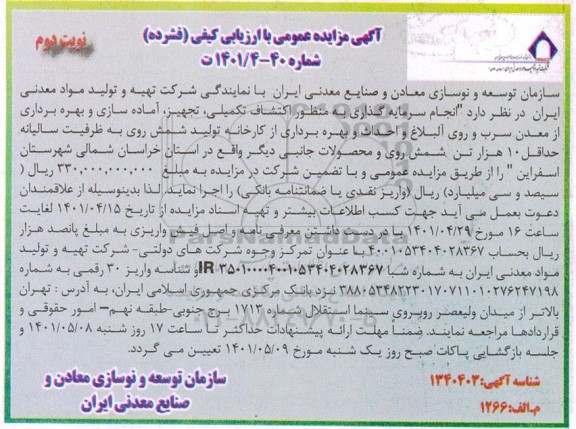 آگهی مزایده عمومی با ارزیابی کیفی (فشرده)
نوبت دوم
شماره ۴۰-۱۴۰۱/۴ ت
سازمان توسعه و نوسازی معادن و صنایع معدنی ایران با نمایندگی شرکت تهیه و تولید مواد معدنی
ایران در نظر دارد "انجام سرمایه گذاری به منظور اکتشاف تکمیلی، تجهیز، آماده سازی و بهره برداری
از معدن سرب و روی آلبلاغ و احداث و بهره برداری از کارخانه تولید شمش روی به ظرفیت سالیانه
حداقل ۱۰ هزار تن شمش روی و محصولات جانبی دیگر واقع در استان خراسان شمالی شهرستان
اسفراین" را از طریق مزایده عمومی و با تضمین شرکت در مزایده به مبلغ ۳۳۰,۰۰۰,۰۰۰,۰۰۰ ریال (
سیصد و سی میلیارد) ریال (واریز نقدی یا ضمانتنامه بانکی) را اجرا نماید. لذا بدینوسیله از علاقمندان
دعوت بعمل می آید جهت کسب اطلاعات بیشتر و تهیه اسناد مزایده از تاریخ ۱۴۰۱/۰۴/۱۵ لغایت
ساعت ۱۶ مورخ ۱۴۰۱/۰۴/۲۹ با در دست داشتن معرفی نامه و اصل فیش واریزی به مبلغ پانصد هزار
ریال بحساب ۴۰۰۱۰۵۳۴۰۴۰۲۸۳۶۷ با عنوان تمرکز وجوه شرکت های دولتی- شرکت تهیه و تولید
مواد معدنی ایران به شماره شبا IR ۳۵۰۱۰۰۰۰۴۰۰۱۰۵۳۴۰۴۰۲۸۳۶۷ و شناسه واریز ۳۰ رقمی به شماره
۳۸۸۰۵۳۴۸۲۲۳۰۱۷۰۷۱۱۰۱۰۲۷۶۲۴۷۱۹۸ نزد بانک مرکزی جمهوری اسلامی ایران، به آدرس : تهران
بالاتر از میدان ولیعصر روبروی سینما استقلال شماره ۱۷۱۳ برج جنوبی-طبقه نهم- امور حقوقی و
قراردادها مراجعه نمایند. ضمناً مهلت ارائه پیشنهادات حداکثر تا ساعت ۱۷ روز شنبه ۱۴۰۱/۰۵/۰۸ و
جلسه بازگشایی پاکات صبح روز یک شنبه مورخ ۱۴۰۱/۰۵/۰۹ تعیین می گردد.
شناسه آگهی: ۱۳۴۰۴۰۳
م.الف: ۱۲۶۶
سازمان توسعه و نوسازی معادن و
صنایع معدنی ایران
ParsNamadData